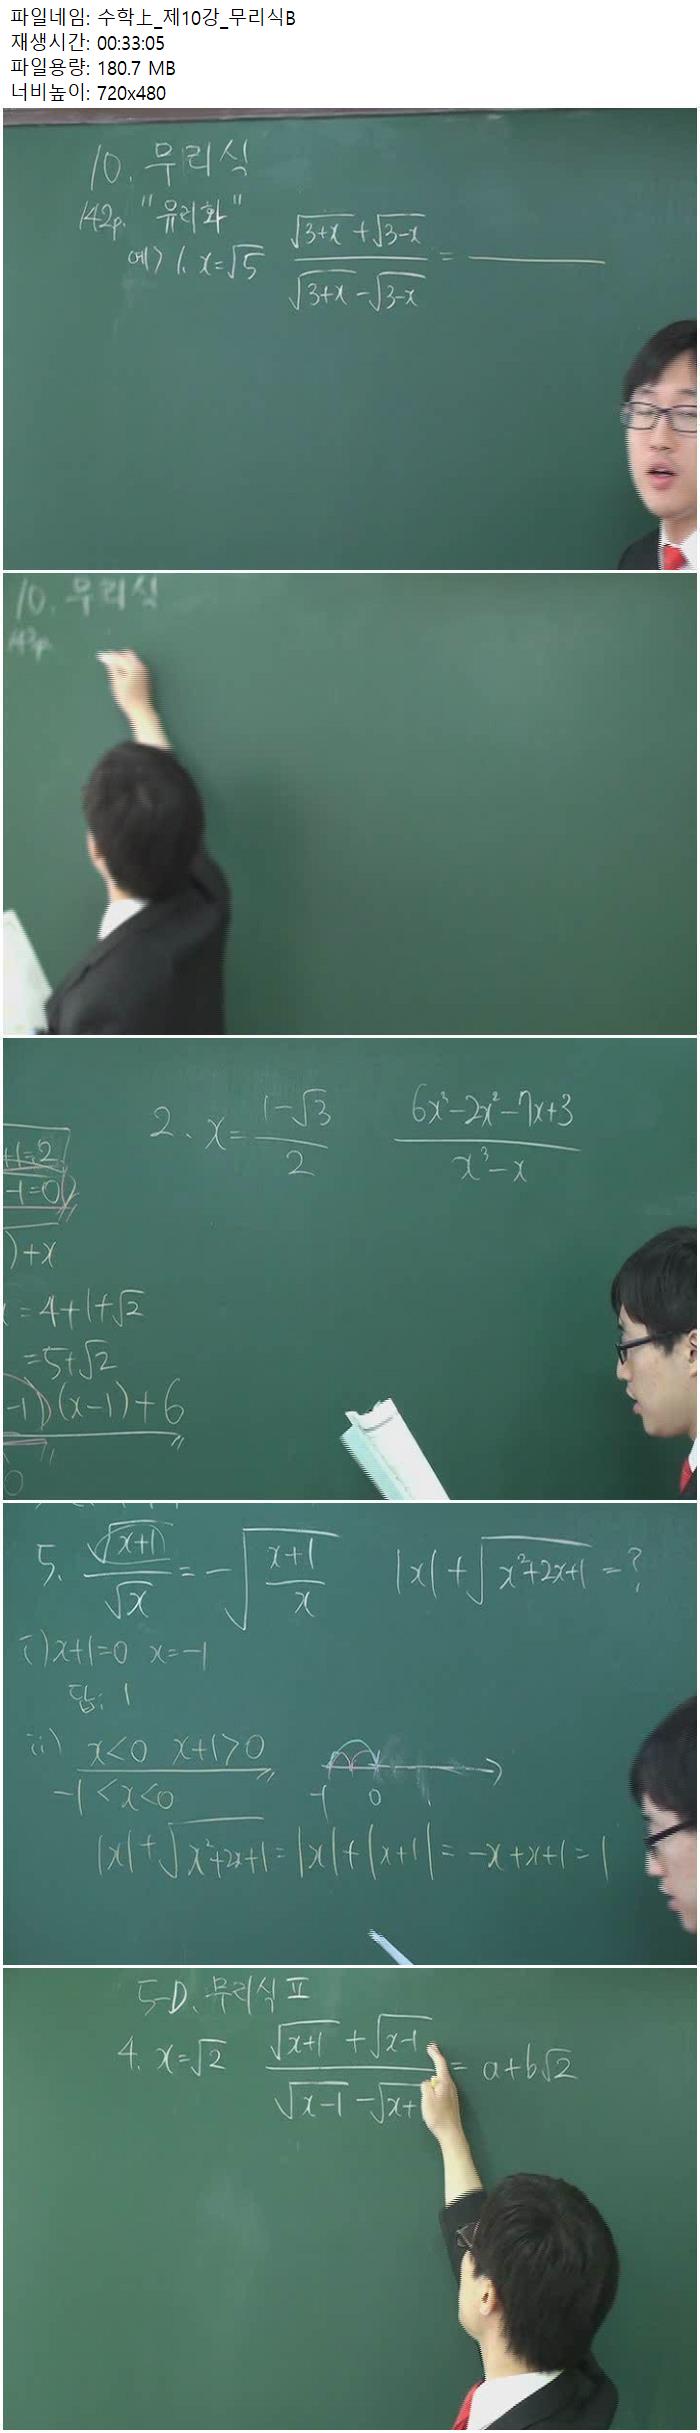 파일네임: 수학上_제10강_무리식B
재생시간: 00:33:05
파일용량: 180.7 MB
너비높이: 720x480
10. 무리식
142p. "유리화"
예> 1. x=√5 (√(3+x) + √(3-x)) / (√(3+x) - √(3-x)) =
10. 무리식
2. x = (1-√3)/2 (6x³-2x²-7x+3)/(x³-x)
+1=2
-1=0
)+x
=4+1+√2
=5+√2
-1)(x-1)+6
0
5. √(x+1)/√x = -√((x+1)/x) |x|+√(x²+2x+1) = ?
i) x+1=0 x=-1
답: 1
ii) x<0 x+1>0
-1<x<0
-1 0
|x|+√(x²+2x+1) = |x|+|x+1| = -x+x+1 = 1
5-D. 무리식 Ⅱ
4. x=√2 (√(x+1) + √(x-1)) / (√(x-1) - √(x+ = a+b√2